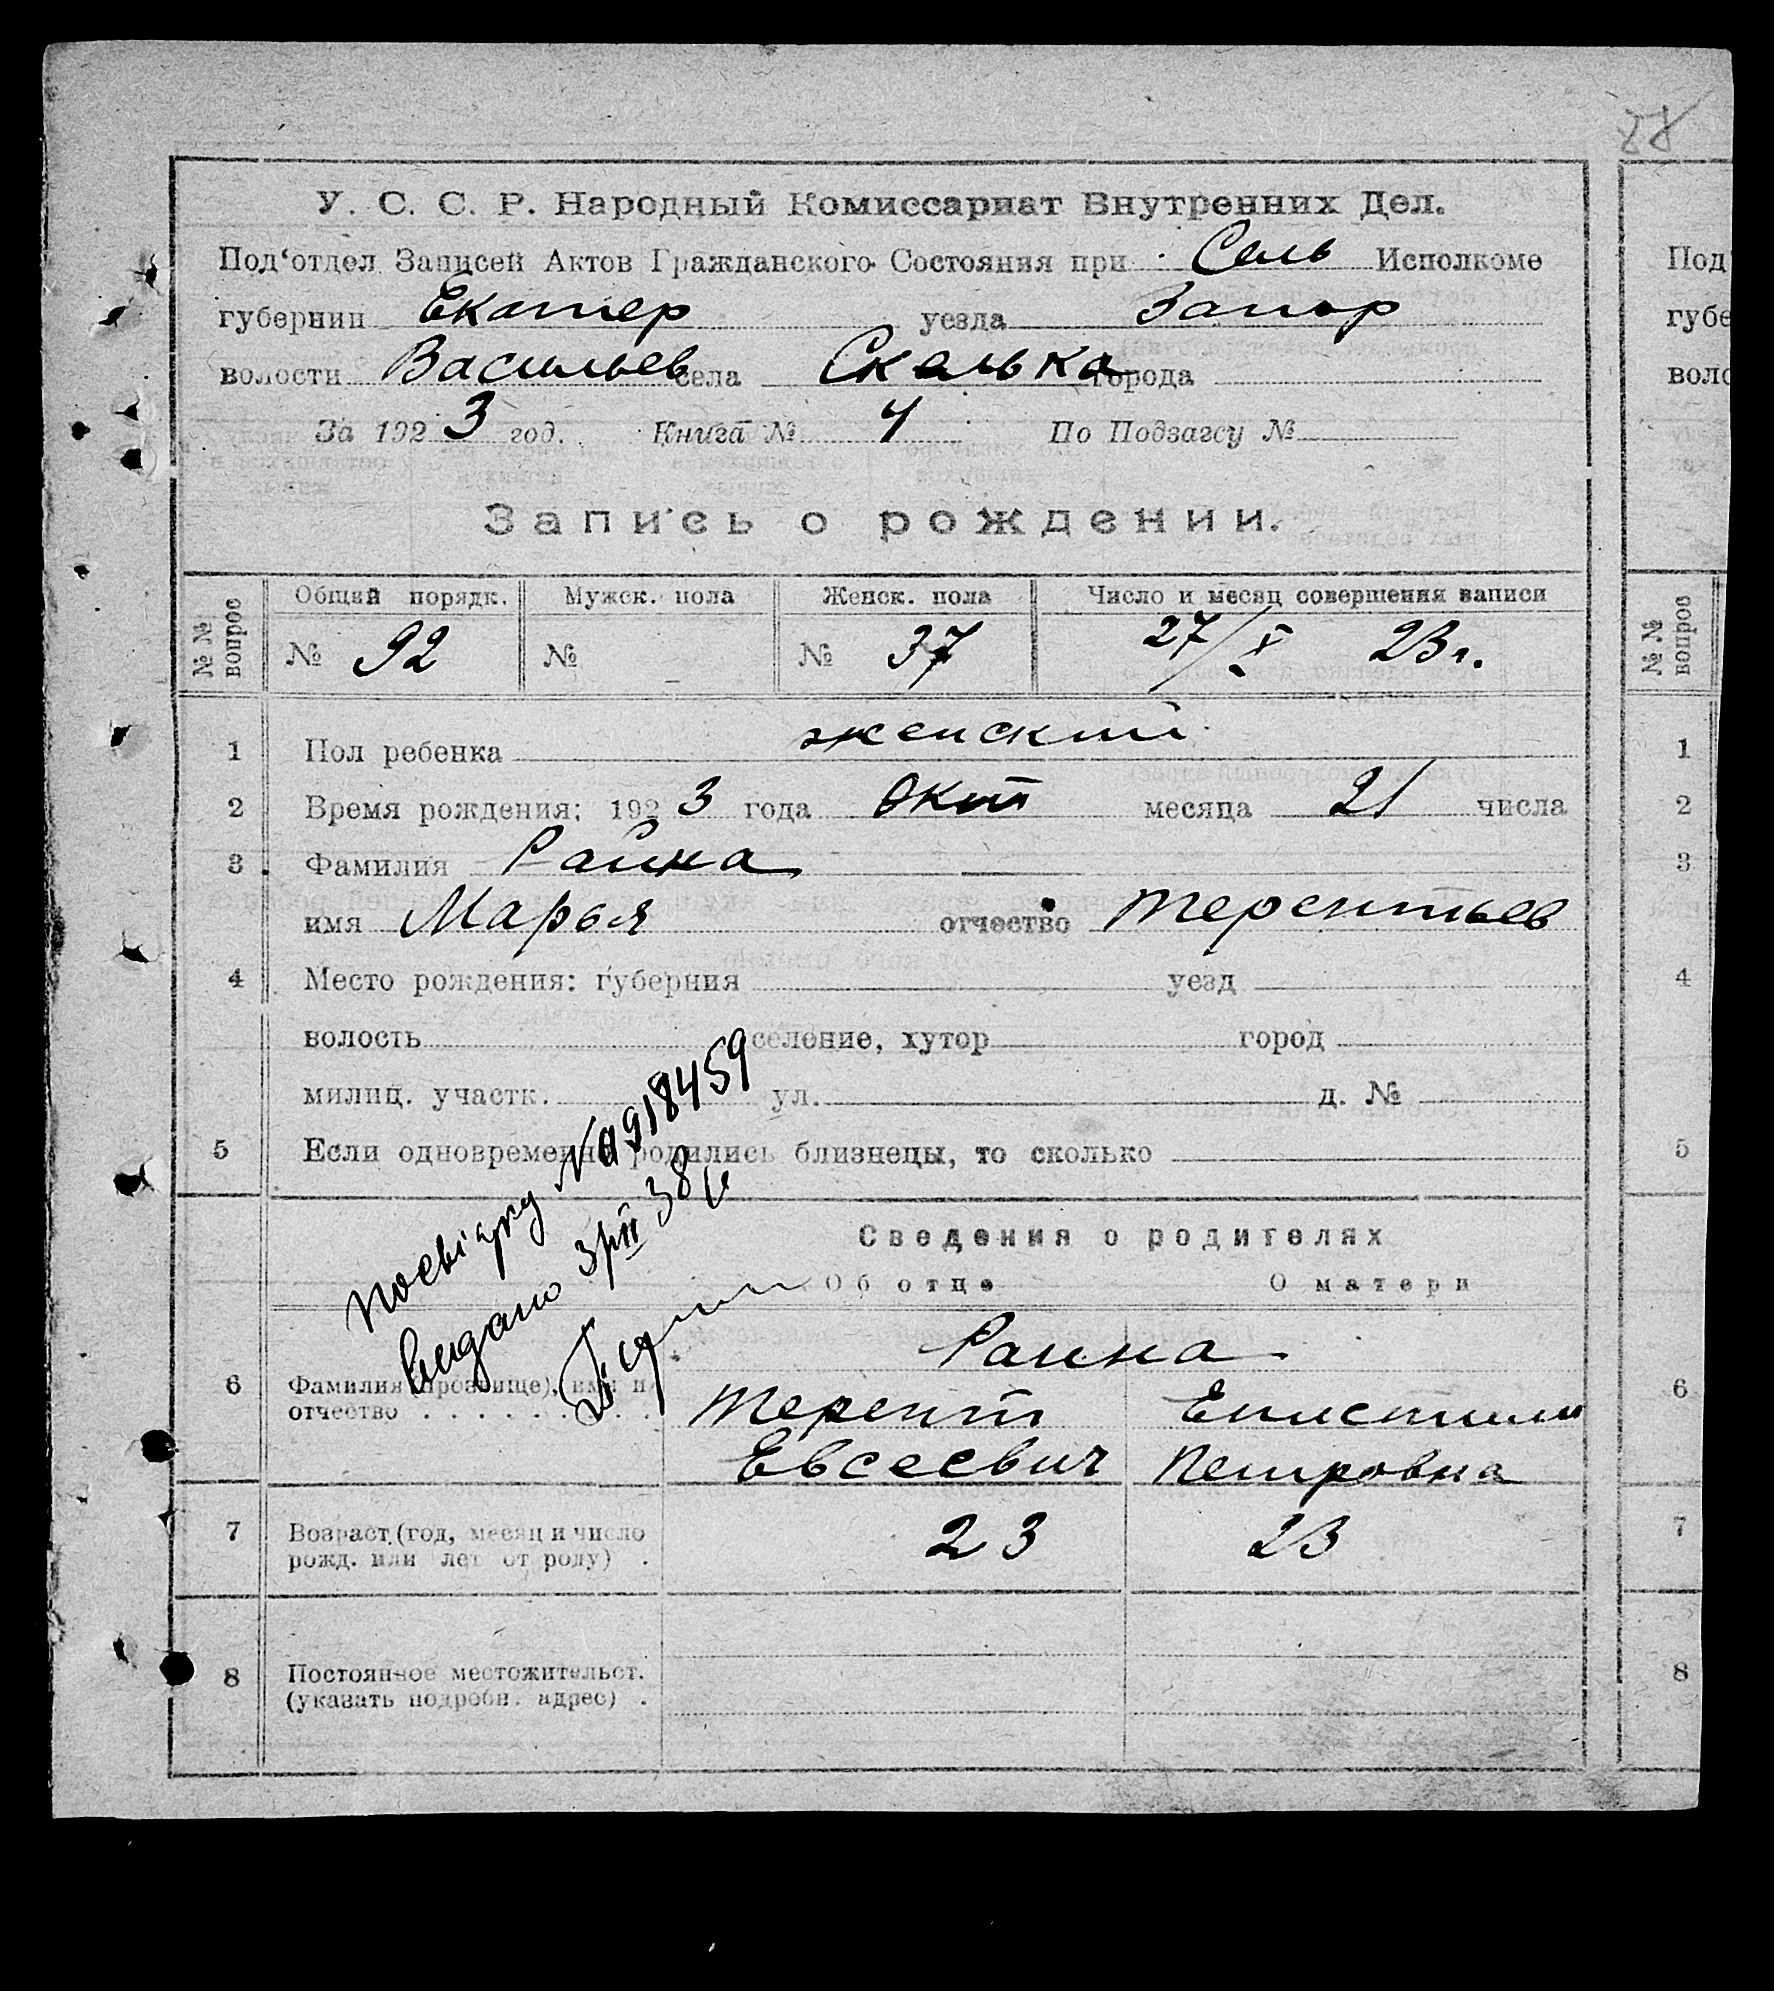 28
У. С. С. Р. Народный Комиссариат Внутренних Дел.
Под‘отдел Записей Актов Гражданского Состояния при Сель Исполкоме
губернии Екатер уезда Запор
волости Васильев села Скелька города
За 1923 год. Книга № 4 По Подзагсу №
Запись о рождении.
№№ вопрос
Общий порядк. Мужск. пола Женск. пола Число и месяц совершения записи
№ 92 № № 37 27/X 23 г.
1 Пол ребенка женский
2 Время рождения: 1923 года Окт месяца 21 числа
3 Фамилия Раина
имя Марья отчество Терентьев
4 Место рождения: губерния уезд
волость селение, хутор город
милиц. участк. ул. д. №
5 Если одновременно родились близнецы, то сколько
посвідку № 918459
видано 3/VII 38 р
Сведения о родителях
Об отце О матери
Раина
6 Фамилия (прозвище), имя и
отчество
Терент
Евсеевич
Епистими
Петровна
7 Возраст (год, месяц и число
рожд. или лет от роду) 23 23
8 Постоянное местожительст.
(указать подробн. адрес)
Под
губе
воло
№№ вопрос
1
2
3
4
5
6
7
8